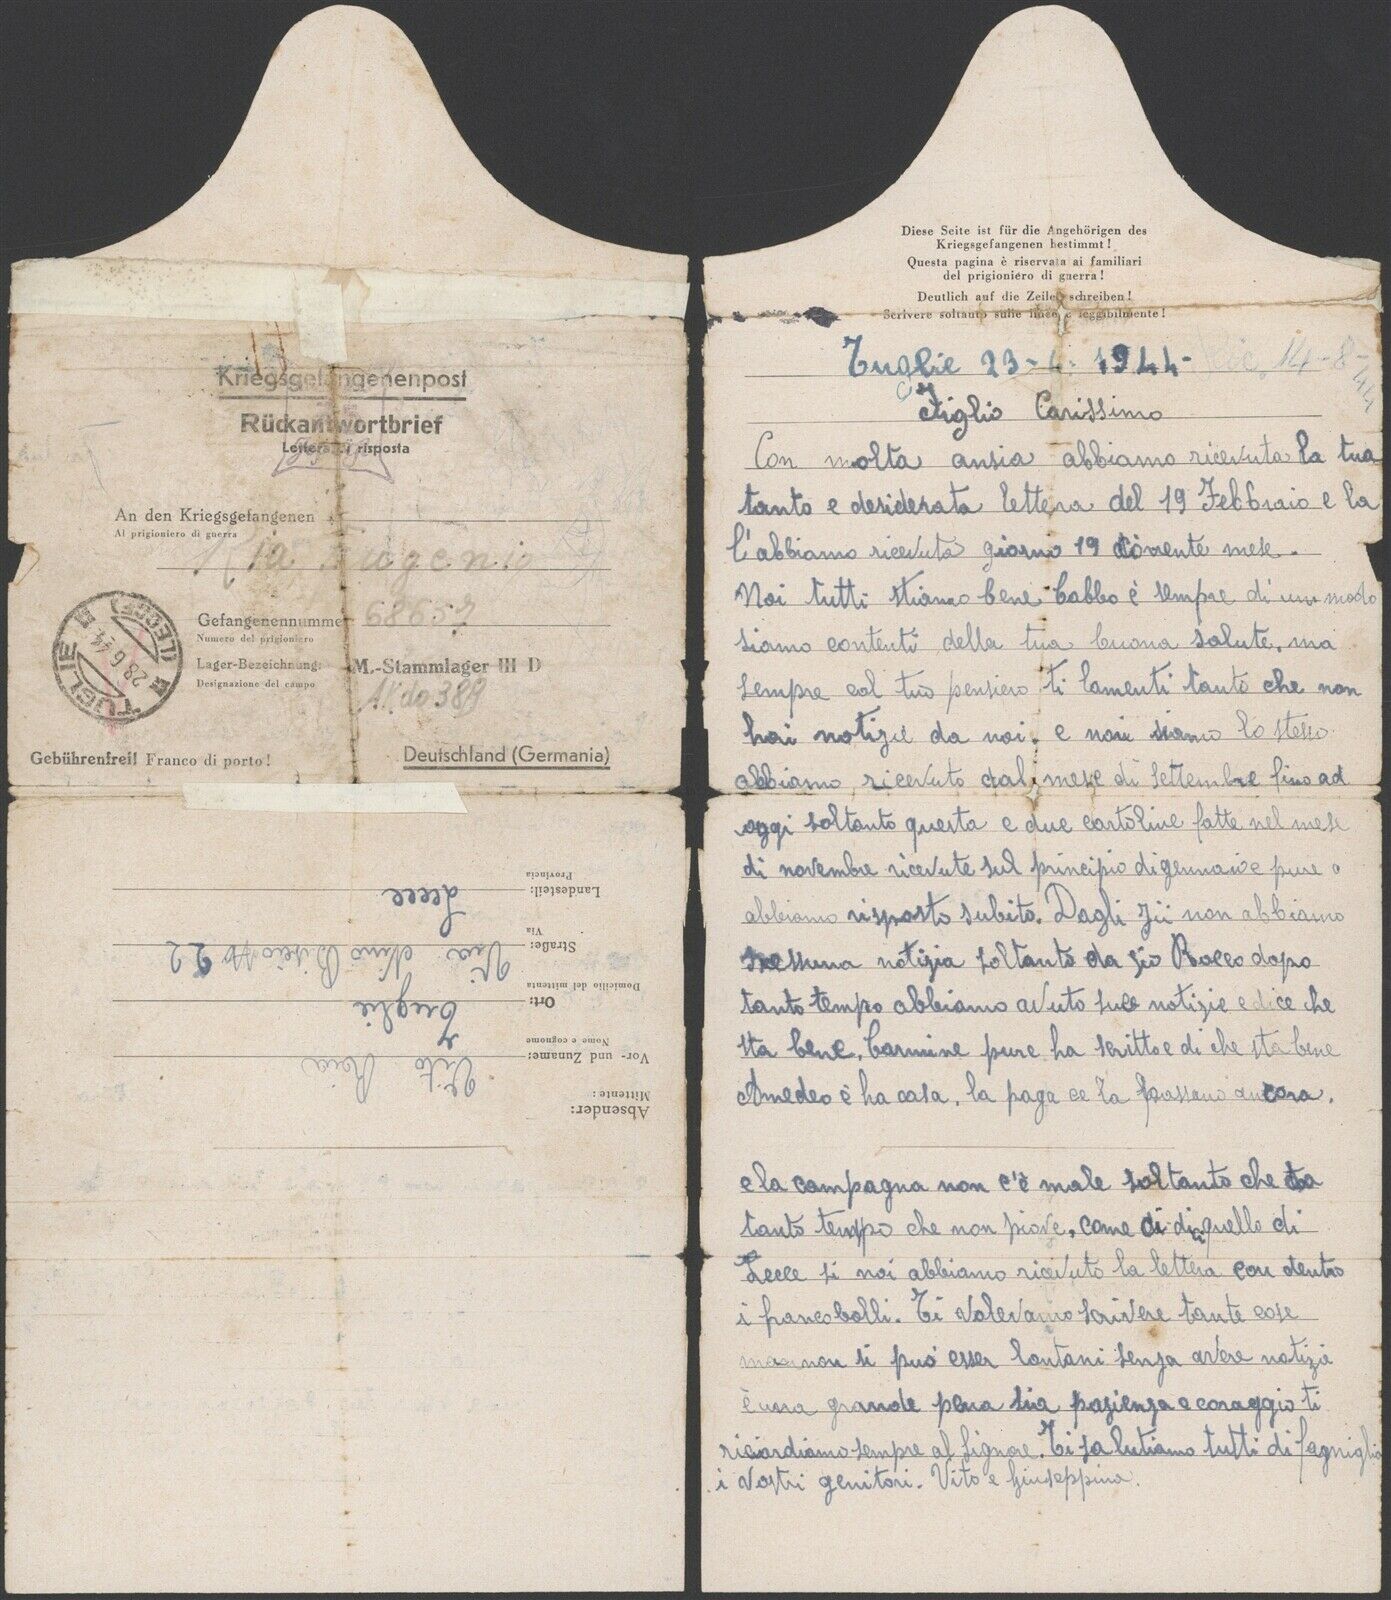 Kriegsgefangenenpost
Rückantwortbrief
Lettera di risposta
An den Kriegsgefangenen
Al prigioniero di guerra
Ria Eugenio
Gefangenennummer 68657
Numero del prigioniero
Lager-Bezeichnung: M.-Stammlager III D
Designazione del campo
389
TUGLIE (LECCE)
28.6.44
Gebührenfrei! Franco di porto!
Deutschland (Germania)
Landesteil: Lecce
Provincia
Straße: Via Nino Bixio No 22
Via
Domicilio del mittente
Ort: Tuglie
Nome e cognome
Vor- und Zuname: Vito Ria
Mittente:
Absender:
Diese Seite ist für die Angehörigen des
Kriegsgefangenen bestimmt!
Questa pagina è riservata ai familiari
del prigioniero di guerra!
Deutlich auf die Zeilen schreiben!
Scrivere soltanto sulle linee e leggibilmente!
Tuglie 23-6-1944- 14-8-44
Figlio Carissimo
Con molta ansia abbiamo ricevuta la tua
tanto e desiderata lettera del 19 Febbraio e la
l'abbiamo ricevuta giorno 19 corrente mese.
Noi tutti stiamo bene babbo è sempre di uno modo
siamo contenti della tua buona salute, ma
sempre col tuo pensiero ti lamenti tanto che non
hai notizie da noi. e noi siamo lo stesso
abbiamo ricevuto dal mese di settembre fino ad
oggi soltanto questa e due cartoline fatte nel mese
di novembre ricevute sul principio di gennaio e pure
abbiamo risposto subito. Dagli zii non abbiamo
nessuna notizia soltanto da zio Rocco dopo
tanto tempo abbiamo avuto sue notizie e dice che
sta bene. Carmine pure ha scritto e di che sta bene
Amedeo è ha casa. la paga ce la passano ancora.
e la campagna non c'è male soltanto che da
tanto tempo che non piove, come di quello di
Lecce si noi abbiamo ricevuto la lettera con dentro
i francobolli. Ti volevamo scrivere tante cose
ma non si può esser lontani senza avere notizie
è una grande pena sia pazienza e coraggio ti
ricordiamo sempre al Signore. Ti salutiamo tutti di famiglia
i vostri genitori. Vito e Giuseppina.